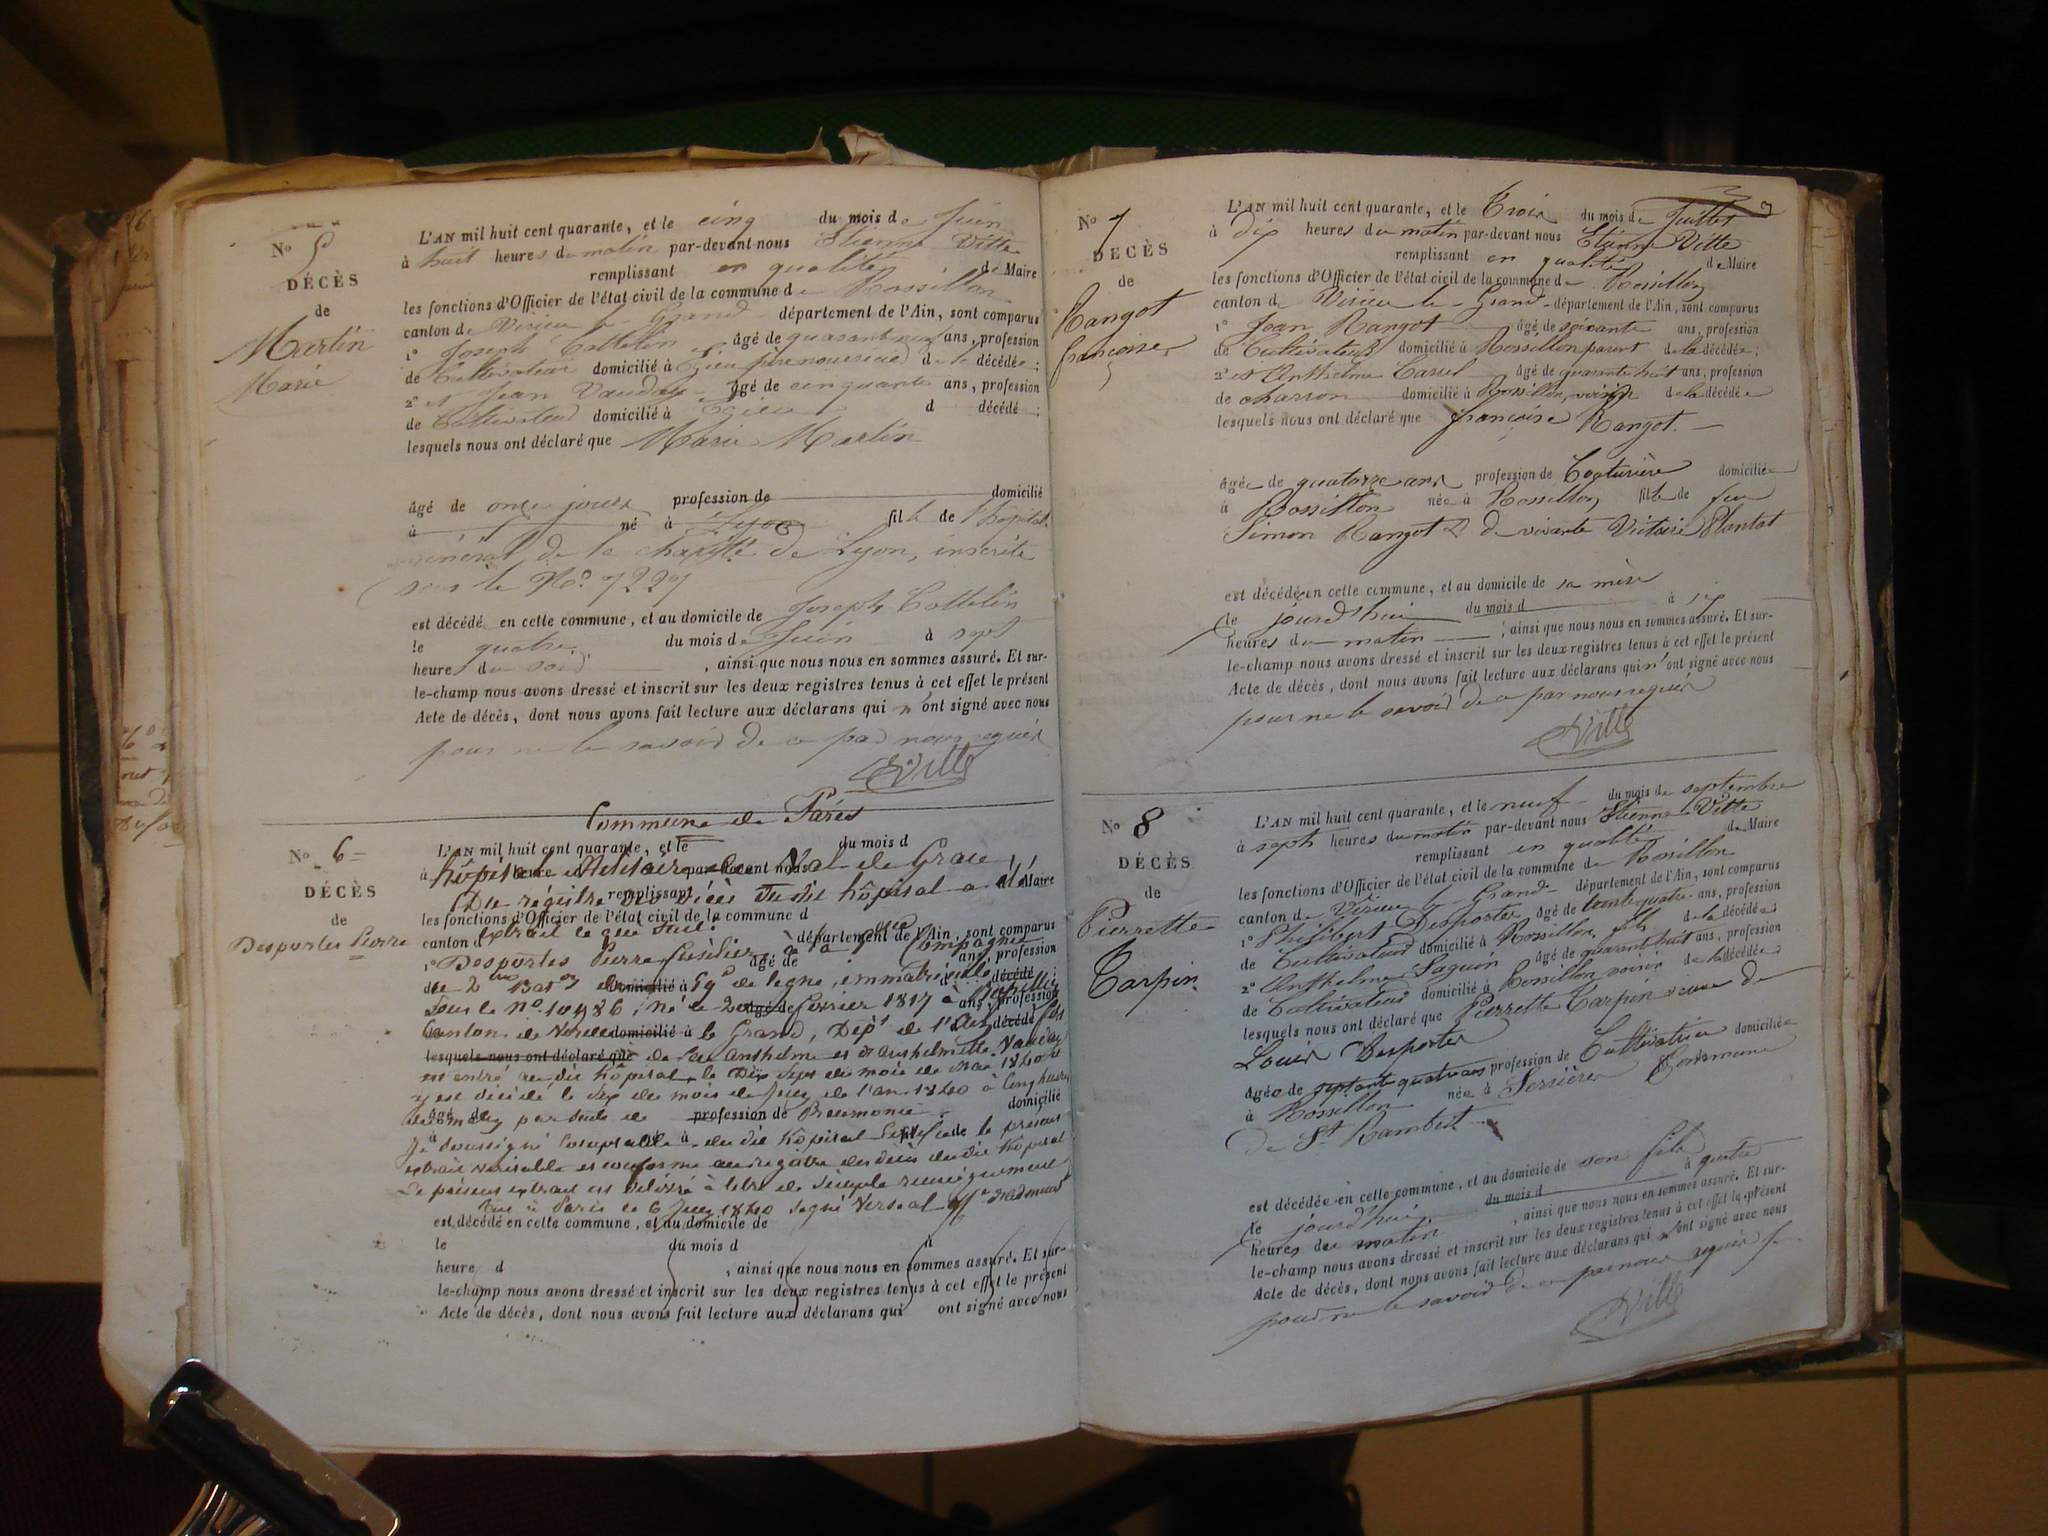 No 5
DÉCÈS
de
Martin
Marie
L'AN mil huit cent quarante, et le cinq du mois de Juin
à huit heures du matin par-devant nous Etienne Vitte
remplissant en qualité de Maire
les fonctions d'Officier de l'état civil de la commune de Rossillon
canton de Virieu le Grand département de l'Ain, sont comparus
1° Joseph Cottelin âgé de quarante ans, profession
de Cultivateur domicilié à Egieu père nourricier de la décédée;
2° et Jean Vauday âgé de cinquante ans, profession
de Cultivateur domicilié à Egieu d décédé ;
lesquels nous ont déclaré que Marie Martin
âgé de onze jours profession de domicilié
à né à Lyon fille de l'hôpital
général de la charité de Lyon, inscrite
sous le No. 7227
est décédé en cette commune, et au domicile de Joseph Cottelin
le quatre du mois de Juin à sept
heures du soir , ainsi que nous nous en sommes assuré. Et sur-
le-champ nous avons dressé et inscrit sur les deux registres tenus à cet effet le présent
Acte de décès, dont nous avons fait lecture aux déclarans qui n'ont signé avec nous
pour ne le savoir de ce par nous requis
Vitte
No 6
DÉCÈS
de
Desportes Pierre
Commune de Paris
L'AN mil huit cent quarante, et le du mois d
à heure par-devant nous
hôpital Militaire du Val de Grace,
remplissant d Maire
Du régistre des décès dudit hôpital a été
les fonctions d'Officier de l'état civil de la commune d
extrait ce qui suit.
canton d département de l'Ain, sont comparus
1° Desportes Pierre fusilier à la Compagnie
âgé de ans, profession
de 2me Baton du domicilié à 59e de ligne, immatriculé décédé ;
sous le No. 10486, né le 20 février 1817 à Rossillon
âgé de ans, profession
Canton de Virieu le Grand, Dépt de l'Ain fils
domicilié à décédé
lesquels nous ont déclaré que de feu Anthelme et d'Anthelmette Vauday
est entré audit hôpital le Dix sept du mois de mai 1840 et
y est décédé le six du mois de juin de l'an 1840 à cinq heures
du matin par suite de Pneumonie
âgé de profession de domicilié
Je soussigné comptable dudit hôpital certifie le présent
extrait véritable et conforme au registre des décès dudit hôpital
Le présent extrait est délivré à titre de simple renseignement
Fait à Paris le 6 Juin 1840 signé
est décédé en cette commune, et au domicile de
le du mois d à
heure d , ainsi que nous nous en sommes assuré. Et sur-
le-champ nous avons dressé et inscrit sur les deux registres tenus à cet effet le présent
Acte de décès, dont nous avons fait lecture aux déclarans qui ont signé avec nous
No 7
DÉCÈS
de
Rangot
françoise
L'AN mil huit cent quarante, et le Trois du mois de Juillet
à dix heures du matin par-devant nous Etienne Vitte
remplissant en qualité de Maire
les fonctions d'Officier de l'état civil de la commune de Rossillon
canton de Virieu le Grand département de l'Ain, sont comparus
1° Jean Rangot âgé de soixante ans, profession
de Cultivateur domicilié à Rossillon parent de la décédée;
2° et Anthelme Carrel âgé de quarante huit ans, profession
de charron domicilié à Rossillon, voisin de la décédée
lesquels nous ont déclaré que françoise Rangot.
âgée de quatorze ans profession de Couturière domiciliée
à Rossillon née à Rossillon fille de feu
Simon Rangot & de vivante Victoire Plantat
est décédée en cette commune, et au domicile de sa mère
le jourd'hui du mois d à six
heures du matin , ainsi que nous nous en sommes assuré. Et sur-
le-champ nous avons dressé et inscrit sur les deux registres tenus à cet effet le présent
Acte de décès, dont nous avons fait lecture aux déclarans qui n'ont signé avec nous
pour ne le savoir de ce par nous requis
Vitte
No 8
DÉCÈS
de
Pierrette
Tarpin
L'AN mil huit cent quarante, et le neuf du mois de septembre
à sept heures du matin par-devant nous Etienne Vitte
remplissant en qualité de Maire
les fonctions d'Officier de l'état civil de la commune de Rossillon
canton de Virieu le Grand département de l'Ain, sont comparus
1° Philibert Desportes âgé de trente quatre ans, profession
de Cultivateur domicilié à Rossillon, fils de la décédée
2° Anthelme Saguin âgé de quarante huit ans, profession
de Cultivateur domicilié à Rossillon voisin de la décédée;
lesquels nous ont déclaré que Pierrette Tarpin veuve de
Louis Desportes
Agée de septante quatre ans profession de Cultivatrice domiciliée
à Rossillon née à Serrières Commune
de St Rambert
est décédée en cette commune, et au domicile de son fils
le jourd'hui du mois d à quatre
heures du matin , ainsi que nous nous en sommes assuré. Et sur-
le-champ nous avons dressé et inscrit sur les deux registres tenus à cet effet le présent
Acte de décès, dont nous avons fait lecture aux déclarans qui n'ont signé avec nous
pour ne le savoir de ce par nous requis
Vitte